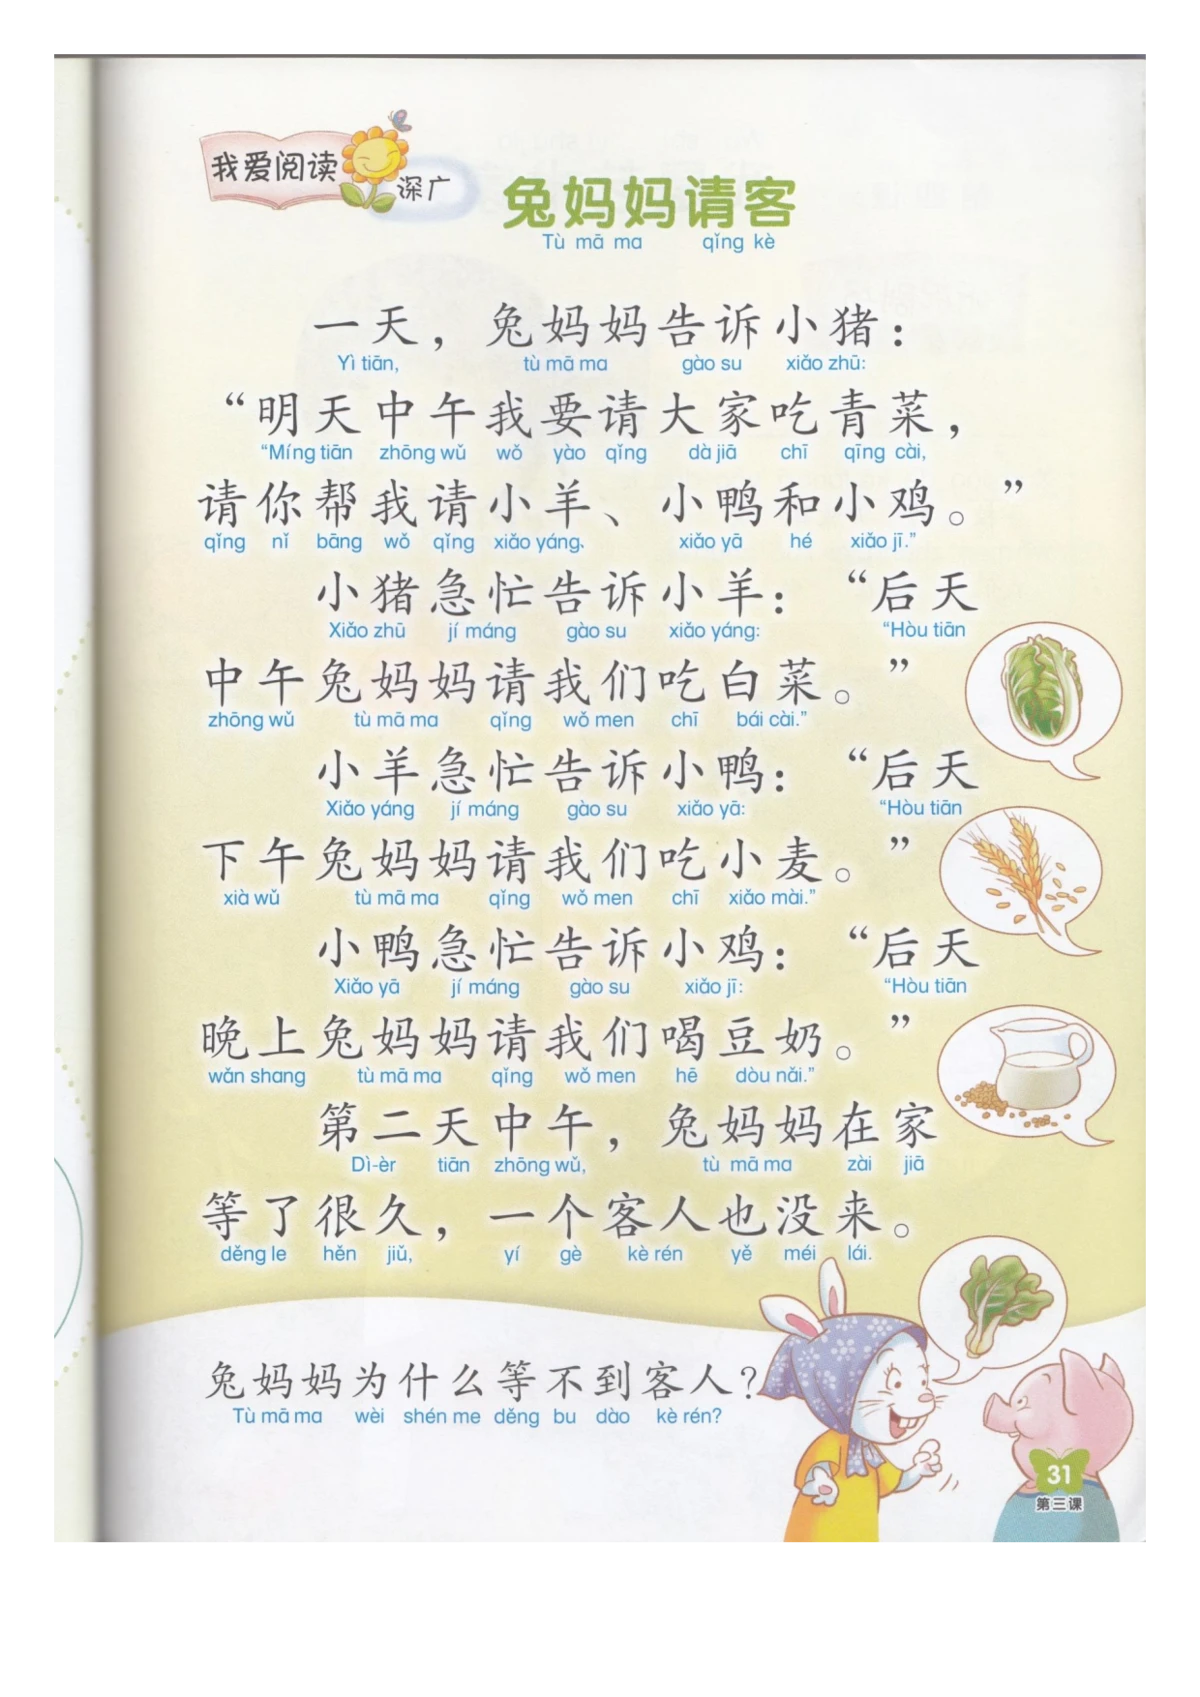 我爱阅读
深广
兔妈妈请客
Tù mā ma qǐng kè
一天，兔妈妈告诉小猪：
Yì tiān, tù mā ma gào su xiǎo zhū:
“明天中午我要请大家吃青菜，
“Míng tiān zhōng wǔ wǒ yào qǐng dà jiā chī qīng cài,
请你帮我请小羊、小鸭和小鸡。”
qǐng nǐ bāng wǒ qǐng xiǎo yáng、 xiǎo yā hé xiǎo jī.”
小猪急忙告诉小羊：“后天
Xiǎo zhū jí máng gào su xiǎo yáng: “Hòu tiān
中午兔妈妈请我们吃白菜。”
zhōng wǔ tù mā ma qǐng wǒ men chī bái cài.”
小羊急忙告诉小鸭：“后天
Xiǎo yáng jí máng gào su xiǎo yā: “Hòu tiān
下午兔妈妈请我们吃小麦。”
xià wǔ tù mā ma qǐng wǒ men chī xiǎo mài.”
小鸭急忙告诉小鸡：“后天
Xiǎo yā jí máng gào su xiǎo jī: “Hòu tiān
晚上兔妈妈请我们喝豆奶。”
wǎn shang tù mā ma qǐng wǒ men hē dòu nǎi.”
第二天中午，兔妈妈在家
Dì-èr tiān zhōng wǔ, tù mā ma zài jiā
等了很久，一个客人也没来。
děng le hěn jiǔ, yí gè kè rén yě méi lái.
兔妈妈为什么等不到客人？
Tù mā ma wèi shén me děng bu dào kè rén?
31
第三课